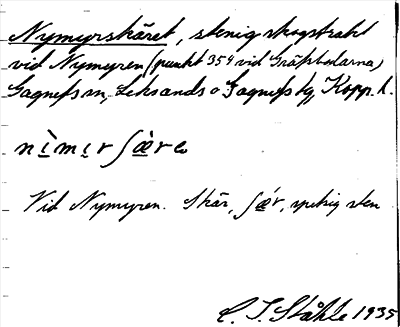 Nymyrskäret, stenig skogstrakt
vid Nymyren (punkt 354 vid Gräfbodarna)
Gagnefs sn, Leksands o Gagnefs tg, Kopp. l.
nìmır ʃæ̀re
Vid Nymyren. Skär, ʃæ´r, spetsig sten
C. I. Ståhle 1935